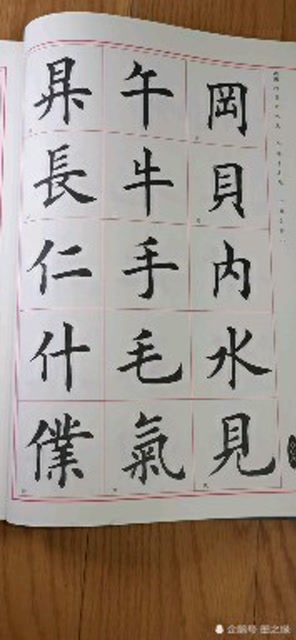 岡貝内水見
午牛手毛氣
長仁什僕
企鹅号